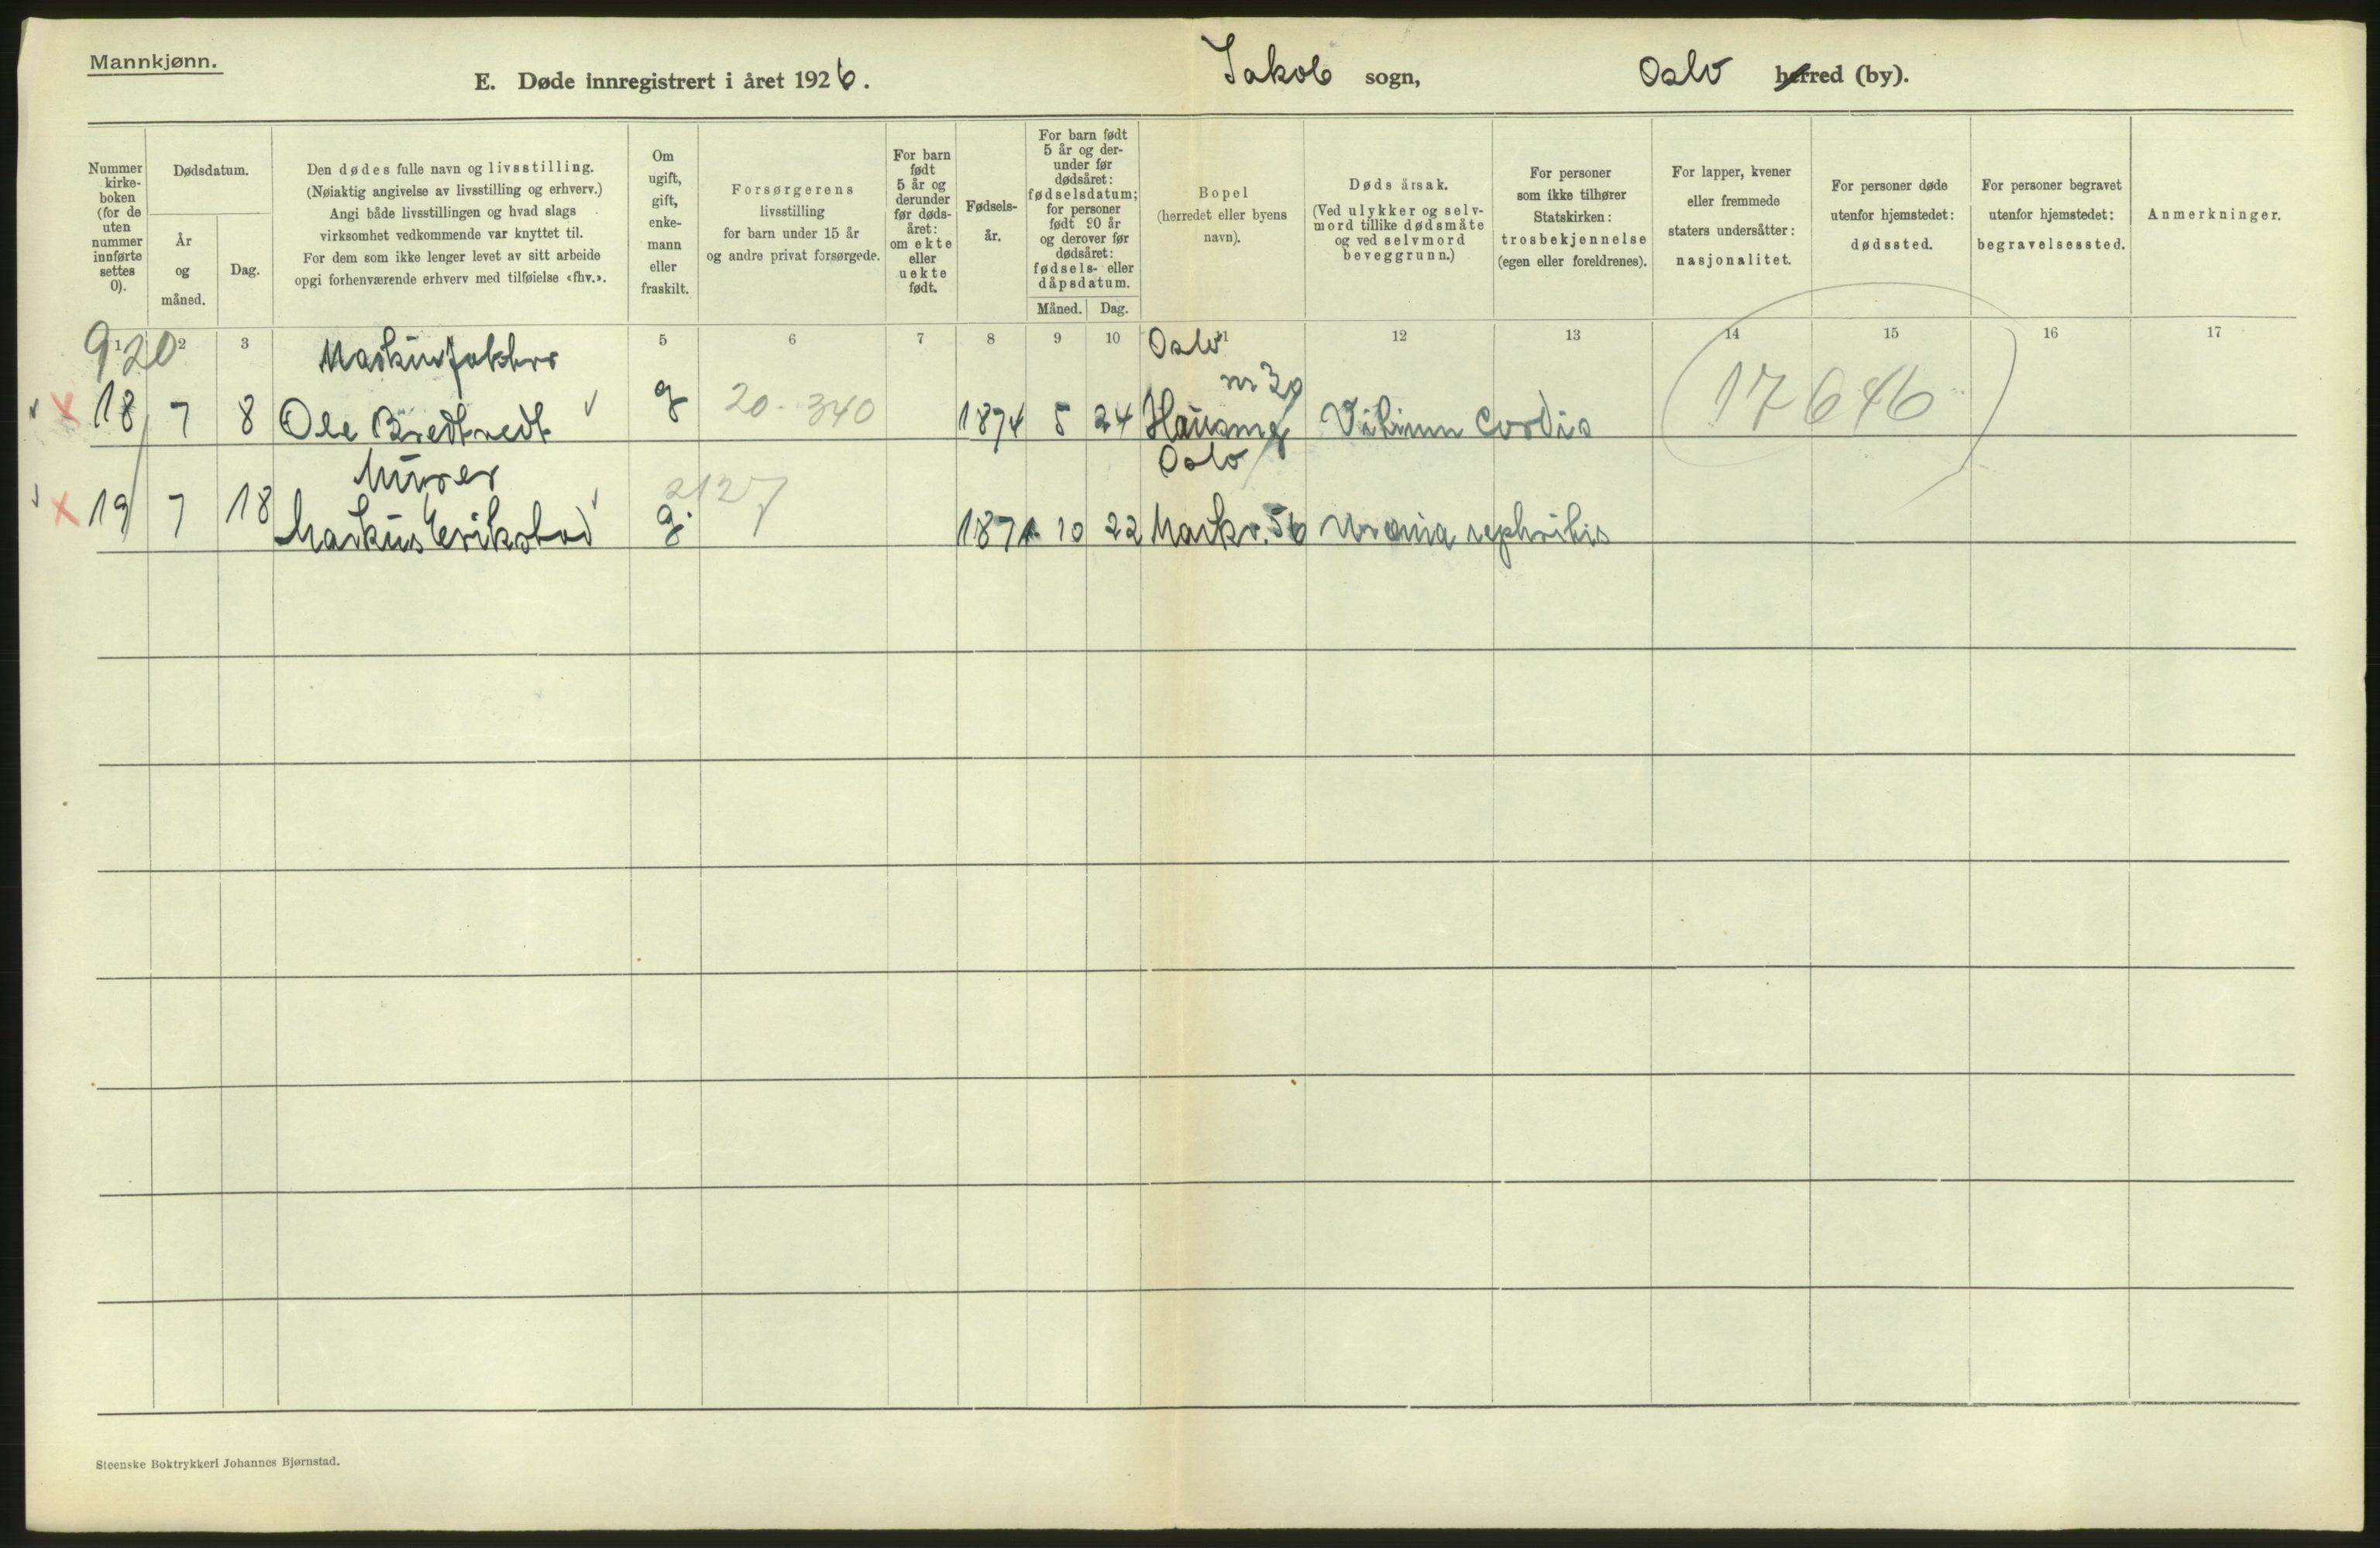 Mannkjønn.
E. Døde innregistrert i året 1926.
Jakob sogn,
Oslo herred (by).
Nummer kirke- boken (for de uten nummer innførte settes 0).
Dødsdatum.
År og måned.
Dag.
Den dødes fulle navn og livsstilling.
(Nøiaktig angivelse av livsstilling og erhverv.)
Angi både livsstillingen og hvad slags
virksomhet vedkommende var knyttet til.
For dem som ikke lenger levet av sitt arbeide
opgi forhenværende erhverv med tilføielse «fhv.».
Om ugift, gift, enke- mann eller fraskilt.
Forsørgerens
livsstilling
for barn under 15 år
og andre privat forsørgede.
For barn født 5 år og derunder før døds- året: om ekte eller uekte født.
Fødsels- år.
For barn født 5 år og der- under før dødsåret: fødselsdatum; for personer født 90 år og derover før dødsåret: fødsels- eller dåpsdatum.
Måned.
Dag.
Bopel
(herredet eller byens
navn).
Døds årsak.
(Ved ulykker og selv-
mord tillike dødsmåte
og ved selvmord
beveggrunn.)
For personer
som ikke tilhører
Statskirken:
trosbekjennelse
(egen eller foreldrenes).
For lapper, kvener
eller fremmede
staters undersåtter:
nasjonalitet.
For personer døde
utenfor hjemstedet:
dødssted.
For personer begravet
utenfor hjemstedet:
begravelsessted.
Anmerkninger.
1 2 3 5 6 7 8 9 10 11 12 13 14 15 16 17
920
Oslo
nr 39
18 7 8 Ole Bredtvedt g 20-340 1874 5 24 Hausmg Vitium Cordis 17646
Murer
Oslo
19 7 18 Markus Erikstad g. 2127 1871 10 22 Markv. 56 Uremia nephritis
Steenske Boktrykkeri Johannes Bjørnstad.